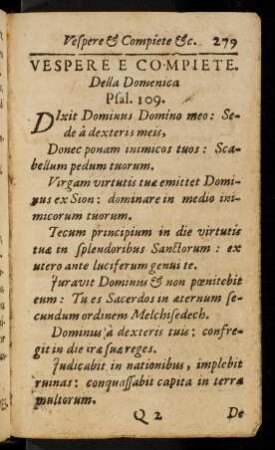 Vespere & Compiete &c. 279
VESPERE E COMPIETE.
Della Domenica
Psal. 109.
DIxit Dominus Domino meo: Se-
de à dexteris meis,
Donec ponam inimicos tuos: Sca-
bellum pedum tuorum.
Virgam virtutis tuæ emittet Domi-
nus ex Sion: dominare in medio ini-
micorum tuorum.
Tecum principium in die virtutis
tuæ in splendoribus Sanctorum: ex
utero ante luciferum genui te.
Juravit Dominus & non pœnitebit
eum: Tu es Sacerdos in æternum se-
cundum ordinem Melchisedech.
Dominus à dexteris tuis: confre-
git in die iræ suæ reges.
Judicabit in nationibus, implebit
ruinas: conquassabit capita in terra
multorum.
Q 2 De